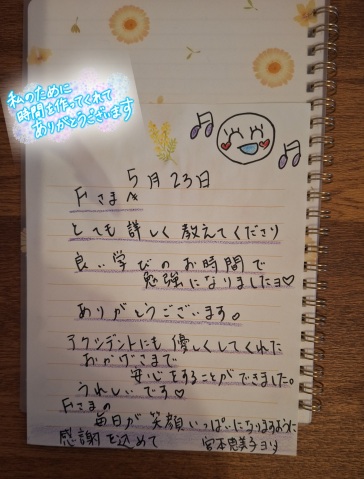 私のために
時間を作ってくれて
ありがとうございます
5月23日
Fさまへ
とても詳しく教えてくださり
良い学びのお時間で
勉強になりましたヨ♡
ありがとうございます。
アクシデントにも優しくしてくれた
おかげさまで
安心をすることができました。
うれしいです♡
Fさまの
毎日が笑顔いっぱいになりますように
感謝を込めて
宮本恵美子ヨリ